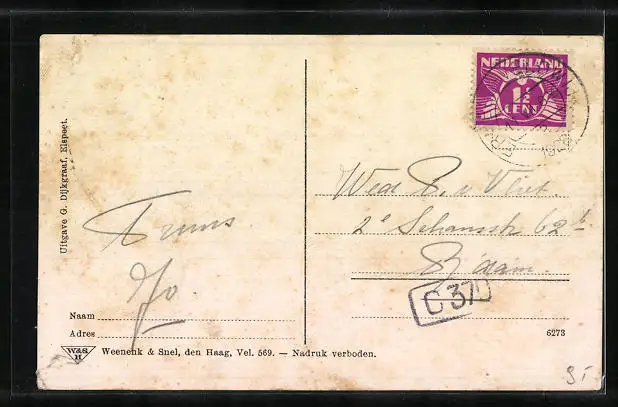 Uitgave G. Dijkgraaf, Elspeet.
NEDERLAND
1½
CENT
Wed v. Vliet.
2e Schansstr 62b
R'dam.
C 37
Truus
Jo
Naam
Adres
W&S
H
Weenenk & Snel, den Haag, Vel. 569. — Nadruk verboden.
6273